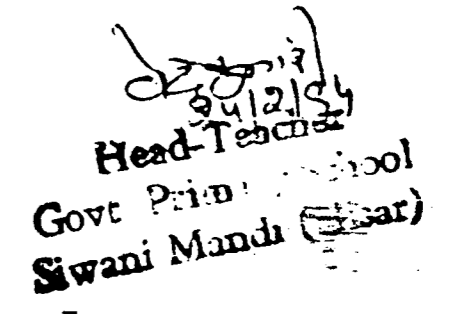 24/2/54
Head-Teacher
Govt Prim School
Siwani Mandi (Hissar)